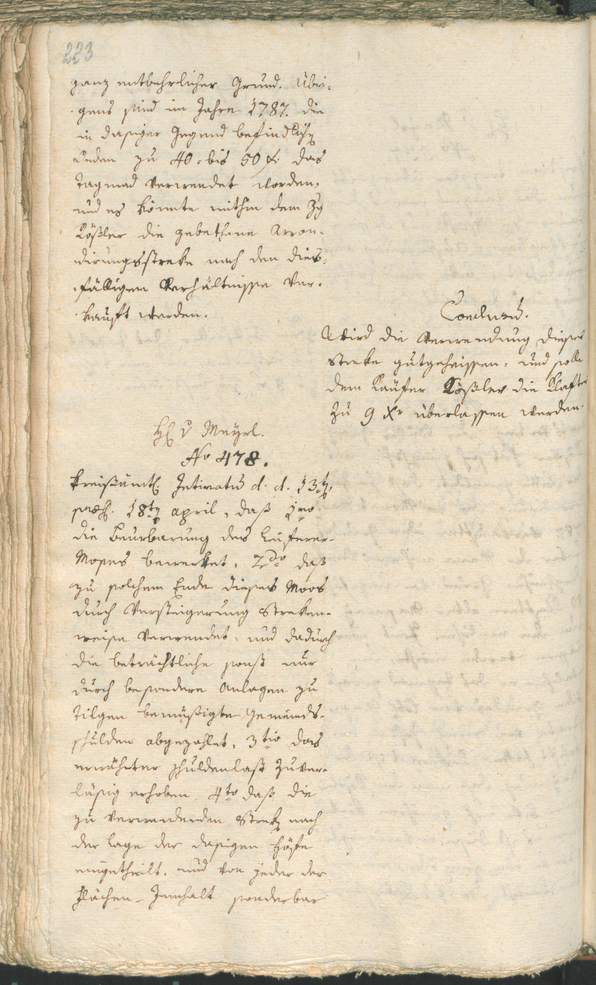 223
ganz entbehrlicher Grund. Übri-
gens sind im Jahre 1787. die
in dasiger Gegend befindliche
Leeden zu 40. bis 50 f. das
Tagmad verwendet worden,
und es könnte mithin dem
Rößler die gebethene Arron-
dirungsstreke nach den dies-
fälligen Verhältnisse ver-
kauft werden.
Conclusum.
Wird die Verwendung dieser
Streke gutgeheissen, und solle
dem Käufer Rößler die Klafter
zu 9 Xr überlassen werden.
H v Mayrl.
No 478.
Kreisämtl. Intimatum d. d. 13t
praes. 18ty april, daß 1mo
die Beurbarung des Luserer-
Moses bewerket, 2do daß
zu solchem Ende dieses Moos
durch Versteigerung Streken-
weise verwendet, und dadurch
die beträchtliche sonst nur
durch besondere Anlagen zu
tilgen bemüßigte Gemeinds-
schulden abgezahlet, 3tio das
ernährter schuldenlast zuver-
läßig erhoben 4to daß die
zu verwendenden Strek nach
der Lage der dasigen Höfe
eingetheilt, und von jeder der
Flächen-Innhalt sonderbar